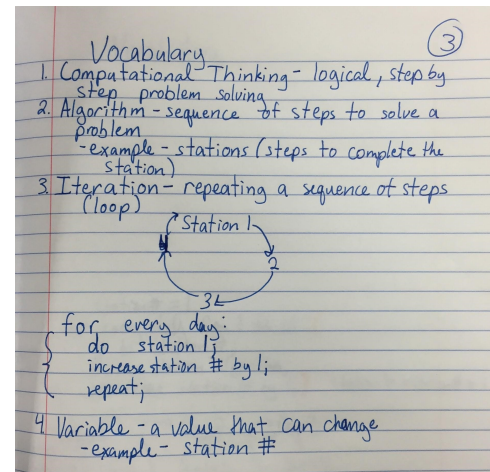 3
Vocabulary
1. Computational Thinking - logical, step by
step problem solving
2. Algorithm - sequence of steps to solve a
problem
-example - stations (steps to complete the
station)
3. Iteration - repeating a sequence of steps
(loop)
Station 1
2
3
for every day:
do station 1;
increase station # by 1;
repeat;
4. Variable - a value that can change
-example - station #